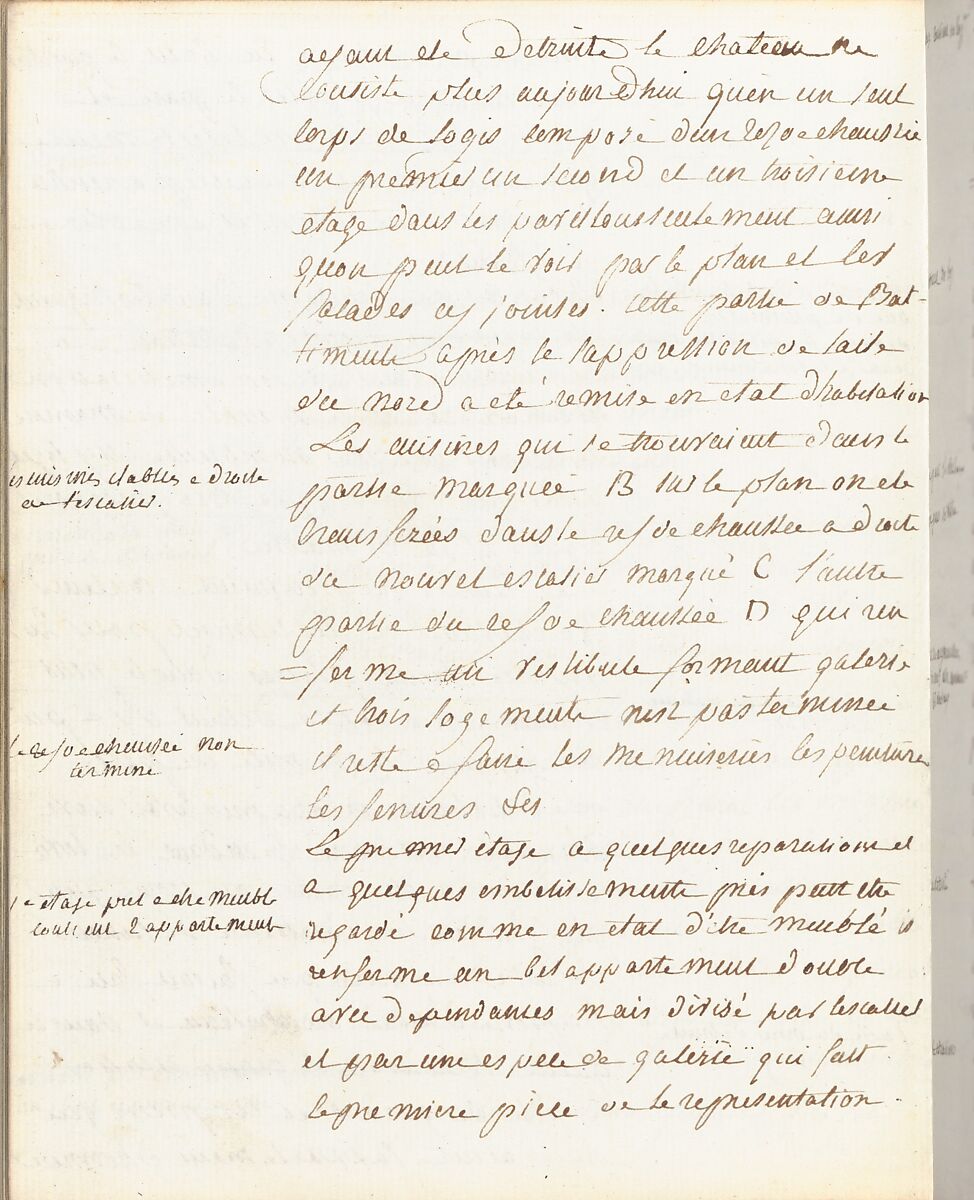 ayant ete detruite le chateau ne
consiste plus aujourdhui quen un seul
corps de logis composé dun rez de chaussée
un premier un second et un troisieme
etage dans les pavillons seulement ainsi
quon peut le voir par le plan et les
facades cy jointes. Cette partie de Bat-
timents après la suppression de laile
du nord a été remise en etat dhabitation
Les cuisines qui se trouvaient dans la
partie marquée B sur le plan on ete
transferées dans le rez de chaussée a droite
du nouvel escalier marqué C l'autre
partie du rez de chaussée D qui ren
= ferme un vestibule formant galerie
et trois logements nest pas terminée
il reste a faire les menuiseries les peintures
les serrures &es
Le premier étage a quelques reparations et
a quelques embelissements près peut etre
regardé comme en etat d'être meublé il
renferme un bel appartement double
avec dependances mais divisé par lescalier
et par une espece de galerie qui fait
la premiere piece de la representation.
cuisines etablies a droite
de lescalier.
le rez de chaussée non
terminé
etage pret a etre meublé
contient 2 appartements